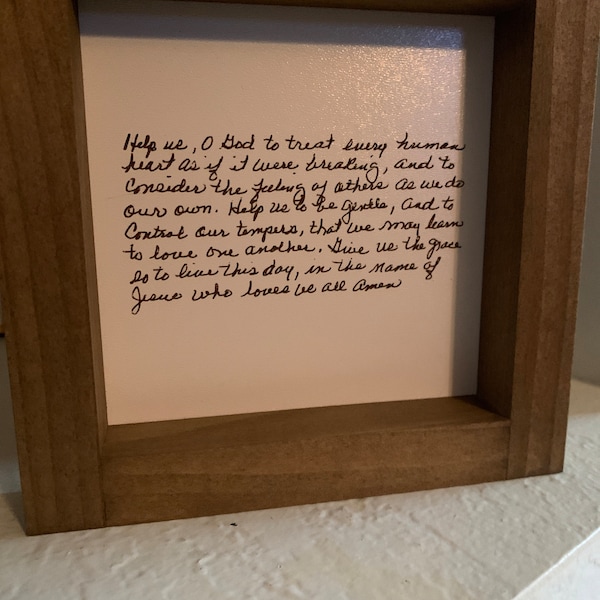 Help us, O God to treat every human
heart as if it were breaking, and to
consider the feeling of others as we do
our own. Help us to be gentle, and to
control our tempers, that we may learn
to love one another. Give us the grace
so to live this day, in the name of
Jesus who loves us all amen